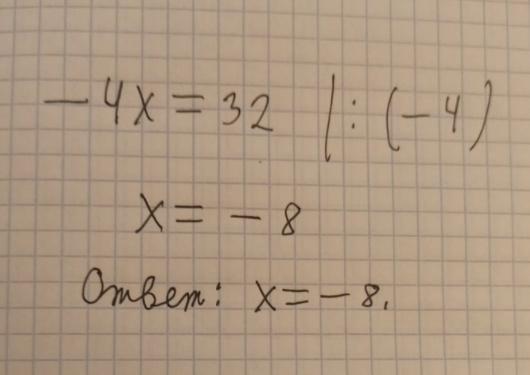 -4x = 32 | : (-4)
x = -8
Ответ: x = -8.